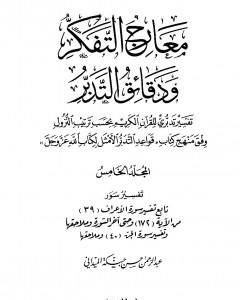 معارج التفكر
ودقائق التدبر
تفسير تدبري للقرآن الكريم بحسب ترتيب النزول
وفق منهج كتاب «قواعد التدبر الأمثل لكتاب الله عز وجل»
المجلد الخامس
تفسير سور
تابع تفسير سورة الأعراف (٣٩)
من الآية (١٧٢) وحتى آخر السورة وملاحقها
وتفسير سورة الجن (٤٠) وملاحقها
عبد الرحمن حسن حبنكة الميداني